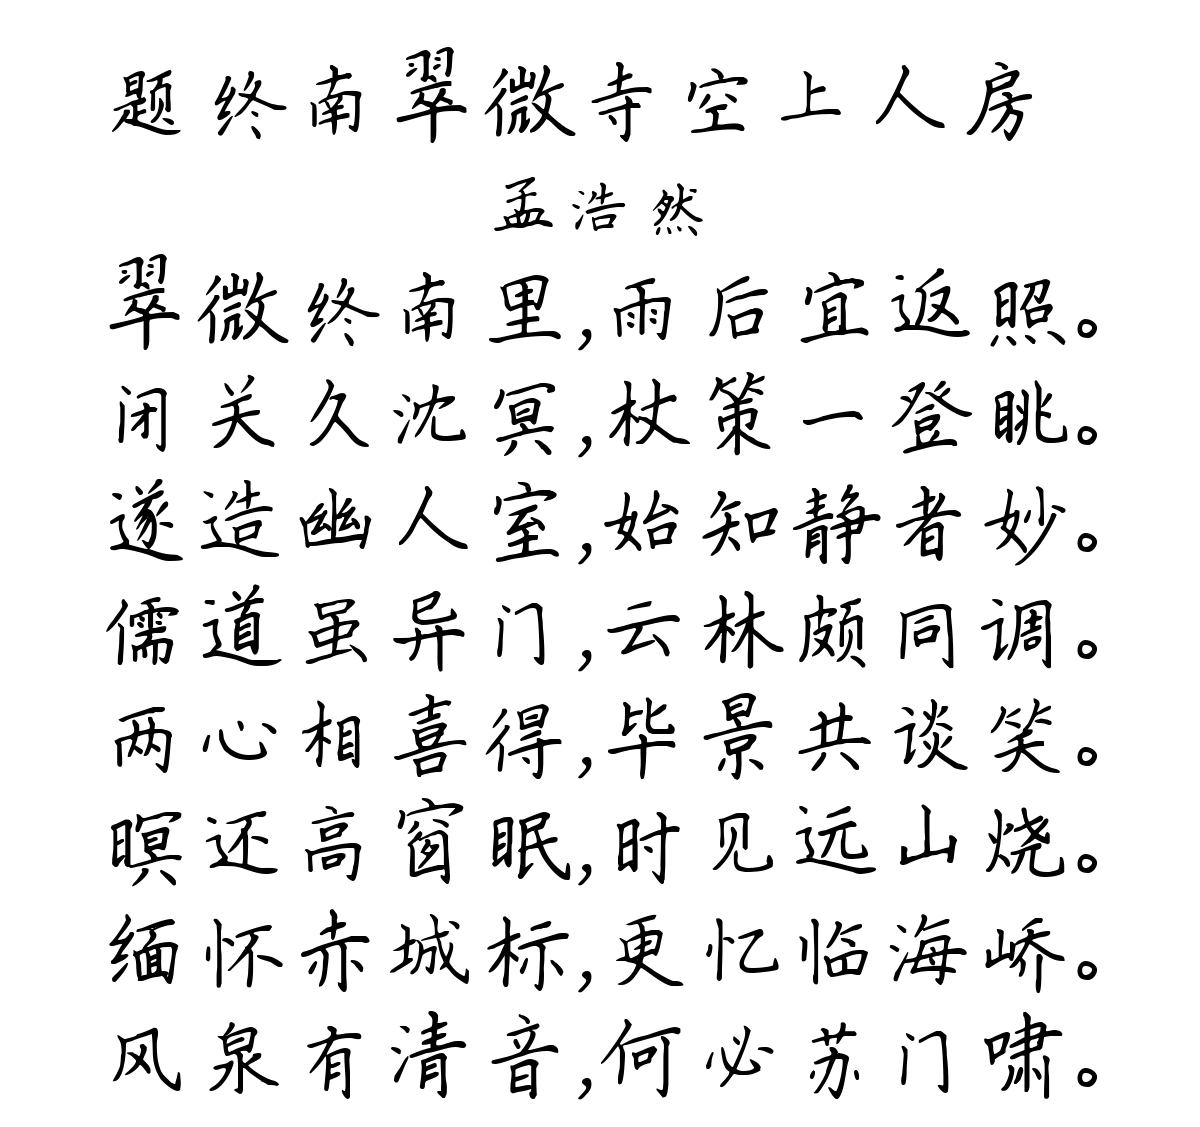 题终南翠微寺空上人房
孟浩然
翠微终南里,雨后宜返照。
闭关久沈冥,杖策一登眺。
遂造幽人室,始知静者妙。
儒道虽异门,云林颇同调。
两心相喜得,毕景共谈笑。
暝还高窗眠,时见远山烧。
缅怀赤城标,更忆临海峤。
风泉有清音,何必苏门啸。